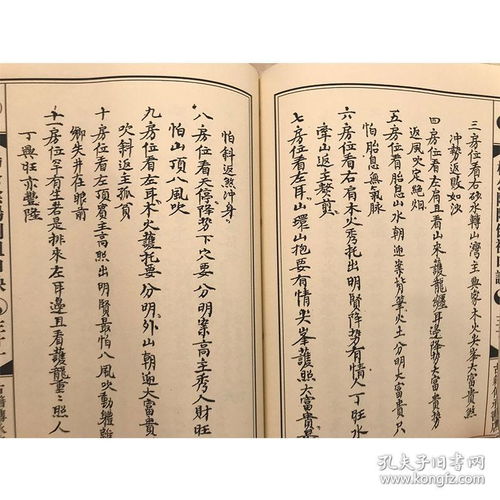 三房位看左右砂水轉山灣主興家木火尖峯大富貴無
沖勢返敗如沙
四房位看左肩且看山來護龍纏耳邊降勢大富貴勢
返風吹定絕烟
五房位看胎息山水朝迎峯背筆火土分明大富貴只
怕胎息無氣脉
六房位看右肩木火秀托出明賢降勢有情人丁旺水
走山返主熬煎
七房位看左耳山環山抱要有情尖峯護照大富貴最
怕斜返煞沖身
八房位看天停降勢下穴要分明案高主秀人財旺
怕山頂八風吹
九房位看左耳木火護托要分明外山朝迎大富貴風
吹斜返主孤貧
十房位看左頂貴主高照出明賢最怕八風吹動離
鄉失井在眼前
十一房位罕有生若是排來左耳邊且看護龍重重照人
丁興旺亦豐隆
三十一
古籍傳承
孔夫子旧书网
kongfz.com